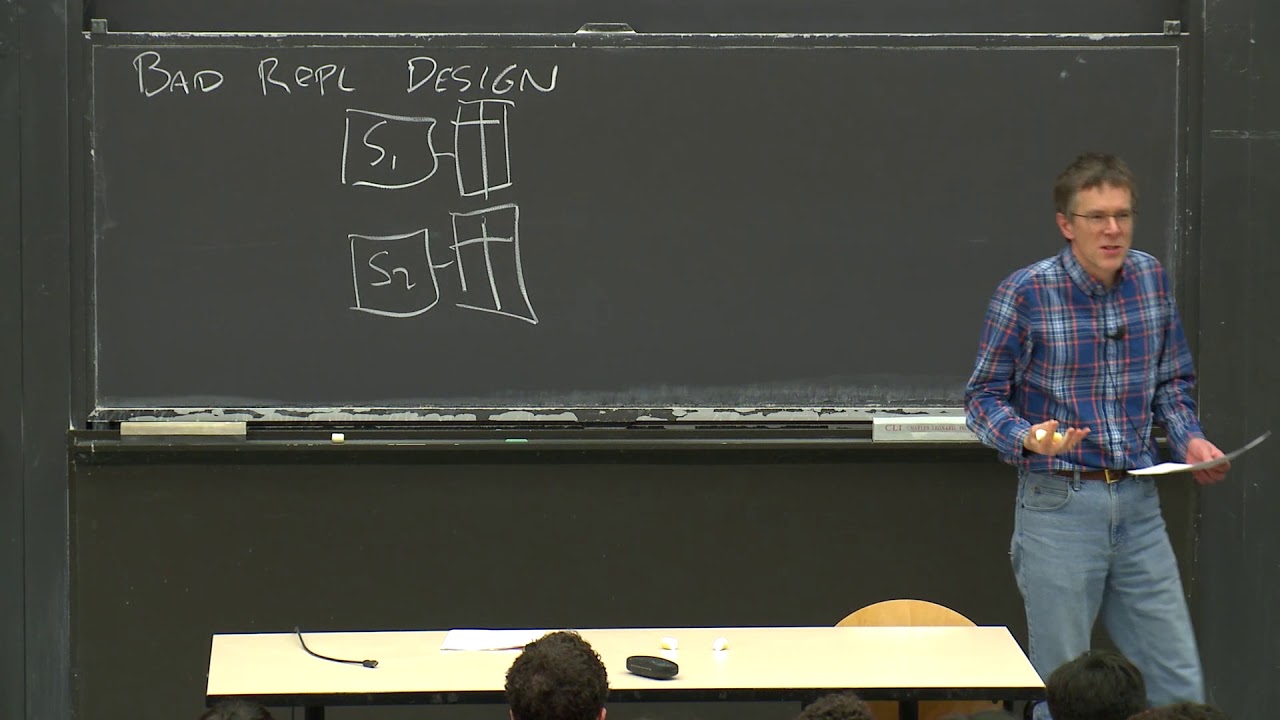 BAD REPL DESIGN
S1
S2
CLT